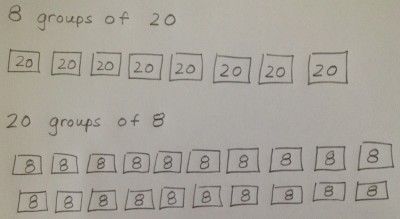 8 groups of 20
20 20 20 20 20 20 20 20
20 groups of 8
8 8 8 8 8 8 8 8 8 8
8 8 8 8 8 8 8 8 8 8